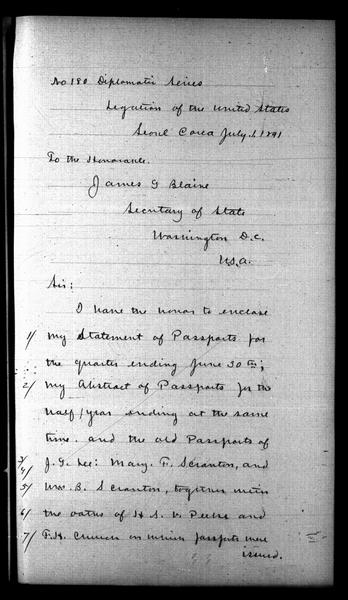 No 180 Diplomatic Series
Legation of the United States
Seoul Corea July 1 1891
To the Honorable.
James G Blaine
Secretary of State
Washington D.C.
U.S.A.
Sir:
I have the honor to enclose
1/ my Statement of Passports for
the quarter ending June 30th;
2/ my Abstract of Passports for the
half/year ending at the same
time. and the old Passports of
3/
4/ J. G. Lee: Mary. F. Scranton, and
5/ Wm. B. Scranton, together with
6/ the oaths of H. S. and
7/ F. H. on which passports were
issued.